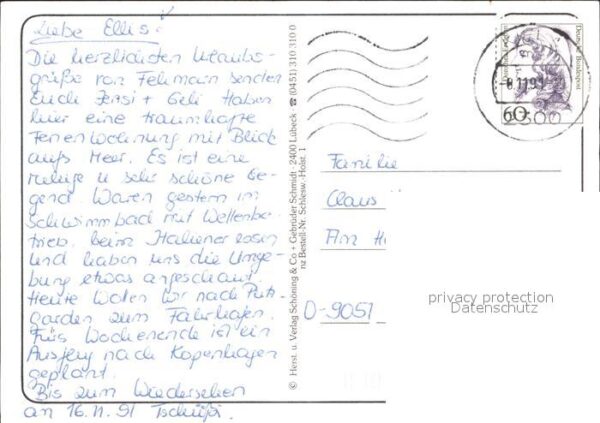 Liebe Ellis!
Die herzlichsten Urlaubs-
grüße von Fehmarn senden
Euch + Geli Haben
hier eine traumhafte
Ferienwohnung mit Blick
aufs Meer. Es ist eine
ruhige u sehr schöne Ge-
gend. Waren gestern im
Schwimmbad mit Wellenbe-
trieb, beim Italiener essen
und haben uns die Umge-
bung etwas angeschaut.
Heute wollen wir nach Putt-
garden zum Fährhafen.
Fürs Wochenende ist ein
Ausflug nach Kopenhagen
geplant.
Bis zum Wiedersehen
an 16.11.91 Tschüßi.
© Herst. u. Verlag Schöning & Co + Gebrüder Schmidt · 2400 Lübeck · ☎ (0451) 310 310 0
nz Bestell-Nr. Schlesw.-Holst. 1
Deutsche Bundespost
60
8.11.91
2300
Familie
Claus
Am H
D-9051
privacy protection
Datenschutz